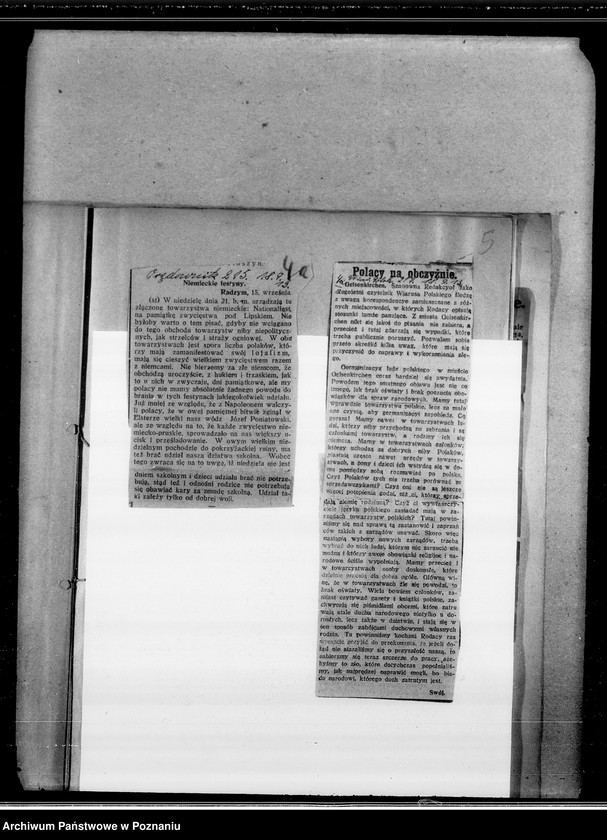 4a
5
Niemieckie festyny.
Radzyn, 15. września
(st) W niedzielę dnia 21. b. m. urządzają tu
złączone towarzystwa niemieckie: Nationalfest,
na pamiątkę zwycięstwa pod Lipskiem. Nie
byłoby warto o tem pisać, gdyby nie wciągano
do tego obchodu towarzystw niby niepolitycz-
nych, jak strzelców i straży ogniowej. W obu
towarzystwach jest spora liczba polaków, któ-
rzy mają zamanifestować swój lojalizm,
mają się cieszyć wielkiem zwycięstwem razem
z niemcami. Nie bierzemy za złe niemcom, że
obchodzą uroczyście, z hukiem i trzaskiem, jak
to u nich w zwyczaju, dni pamiątkowe, ale my
polacy nie mamy absolutnie żadnego powodu do
brania w tych festynach jakiegokolwiek udziału.
Już choćby ze względu, że z Napoleonem walczy-
li polacy, że w owej pamiętnej bitwie zginął w
Elsterze wielki nasz wódz Józef Poniatowski,
ale ze względu na to, że każde zwycięstwo nie-
miecko-pruskie, sprowadziło na nas większy u-
cisk i prześladowanie. W owym wielkim nie-
dzielnym pochodzie do pokrzyżackiej ruiny, ma
też brać udział nasza dziatwa szkolna. Wobec
tego zwraca się na to uwagę, iż niedziela nie jest
dniem szkolnym i dzieci udziału brać nie potrze-
bują, stąd też i odnośni rodzice nie potrzebują
się obawiać kary za zmudę szkolną. Udział ta-
ki zależy tylko od dobrej woli.
Polacy na obczyźnie.
Gelsenkirchen. Szanowna Redakcyo! Jako
długoletni czytelnik Wiarusa Polskiego śledzę
z uwagą korespondencye zamieszczane z róż-
nych miejscowości, w których Rodacy opisują
stosunki tamże panujące. Z miasta Gelsenkir-
chen nikt się jakoś do pisania nie zabiera, a
przecież i tutaj zdarzają się wypadki, które
trzeba publicznie poruszyć. Pozwalam sobie
przeto skreślić kilka uwag, które mają się
przyczynić do naprawy i wykorzenienia złe-
go.
Germanizacya ludu polskiego w mieście
Gelsenkirchen coraz bardziej się uwydatnia.
Powodem tego smutnego objawu jest nic
innego, jak brak oświaty i brak poczucia obo-
wiązków dla spraw narodowych. Mamy tutaj
wprawdzie towarzystwa polskie, lecz za mało
one czynią, aby germanizacyi zapobiedz. Co
gorsza! Mamy nawet w towarzystwach lu-
dzi, którzy niby przychodzą na zebrania i są
członkami towarzystw, a rodziny ich się
niemczą. Mamy w towarzystwach członków,
którzy uchodzą za dobrych niby Polaków,
piastują często nawet urzędy w towarzy-
stwach, a żony i dzieci ich wstydzą się w do-
mu pomiędzy sobą rozmawiać po polsku.
Czyż Polaków tych nie trzeba porównać ze
sprzedawczykami? Czyż oni nie są jeszcze
więcej potępienia godni, niż ci, którzy sprze-
dają ziemię rodzinną? Czyż ci wywłaszczy-
ciele języka polskiego zasiadać mają w za-
rządach towarzystw polskich? Tutaj powin-
niśmy się nad sprawą tą zastanowić i zaprzań-
ców takich z zarządów usuwać. Skoro więc
nastąpią wybory nowych zarządów, trzeba
wybrać do nich ludzi, którym nic zarzucić nie
można i którzy swoje obowiązki religijne i na-
rodowe ściśle wypełniają. Mamy przecież i
w towarzystwach osoby doskonałe, które
dzielnie pracują dla dobra ogółu. Główną wi-
nę, że w towarzystwach źle się powodzi, to
brak oświaty. Wielu bowiem członków, za-
miast czytywać gazety i książki polskie, za-
chwyca się piśmidłami obcemi, które zatru-
wają stale ducha narodowego nietylko u do-
rosłych, lecz także w dziatwie, i stają się w
ten sposób zabójcami duchowymi własnych
rodzin. Tu powinniśmy kochani Rodacy raz
nareszcie przyjść do przekonania, że jeżeli do-
tąd nie staraliśmy się o przyszłość naszą, to
zabierzmy się teraz szczerze do pracy, aże-
byśmy to zło, które dotychczas popełniali-
śmy, jak najprędzej naprawić mogli, bo bia-
da narodowi, którego duch zatrutym jest.
Swój.
Archiwum Państwowe w Poznaniu